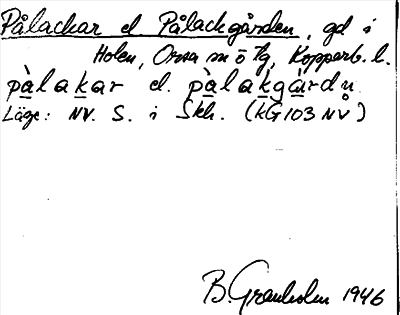 Pålackar el Pålackgården, gd i
Holen, Orsa sn ö tg, Kopparb. l.
pàlakar el. pàlakgàrdn
Läge: NV. S. i Skh. (kG103NV)
B. Granholm 1946